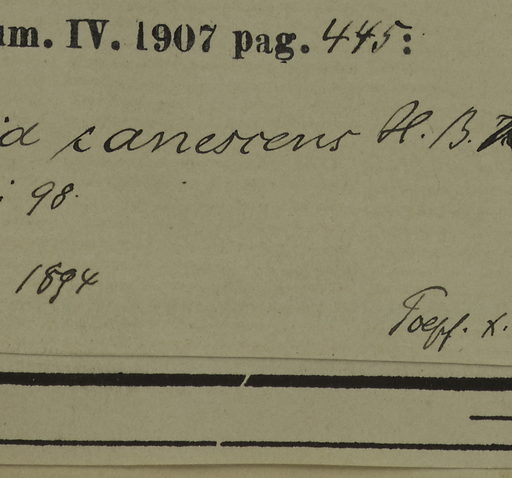 um. IV. 1907 pag. 445:
id canescens H. B.
i 98.
1894
Toepf. X.